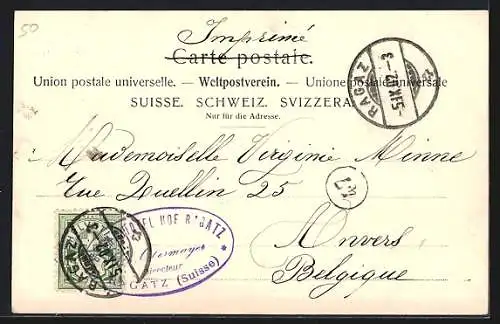 50
Imprimé
Carte postale.
Union postale universelle. — Weltpostverein. — Unione postale universale
SUISSE. SCHWEIZ. SVIZZERA.
Nur für die Adresse.
RAGAZ
5.IX.02.-3
Mademoiselle Virginie Minne
Rue Quellin 25
Anvers
Belgique
HOTEL HOF RAGATZ
RAGATZ (Suisse)
RAGAZ